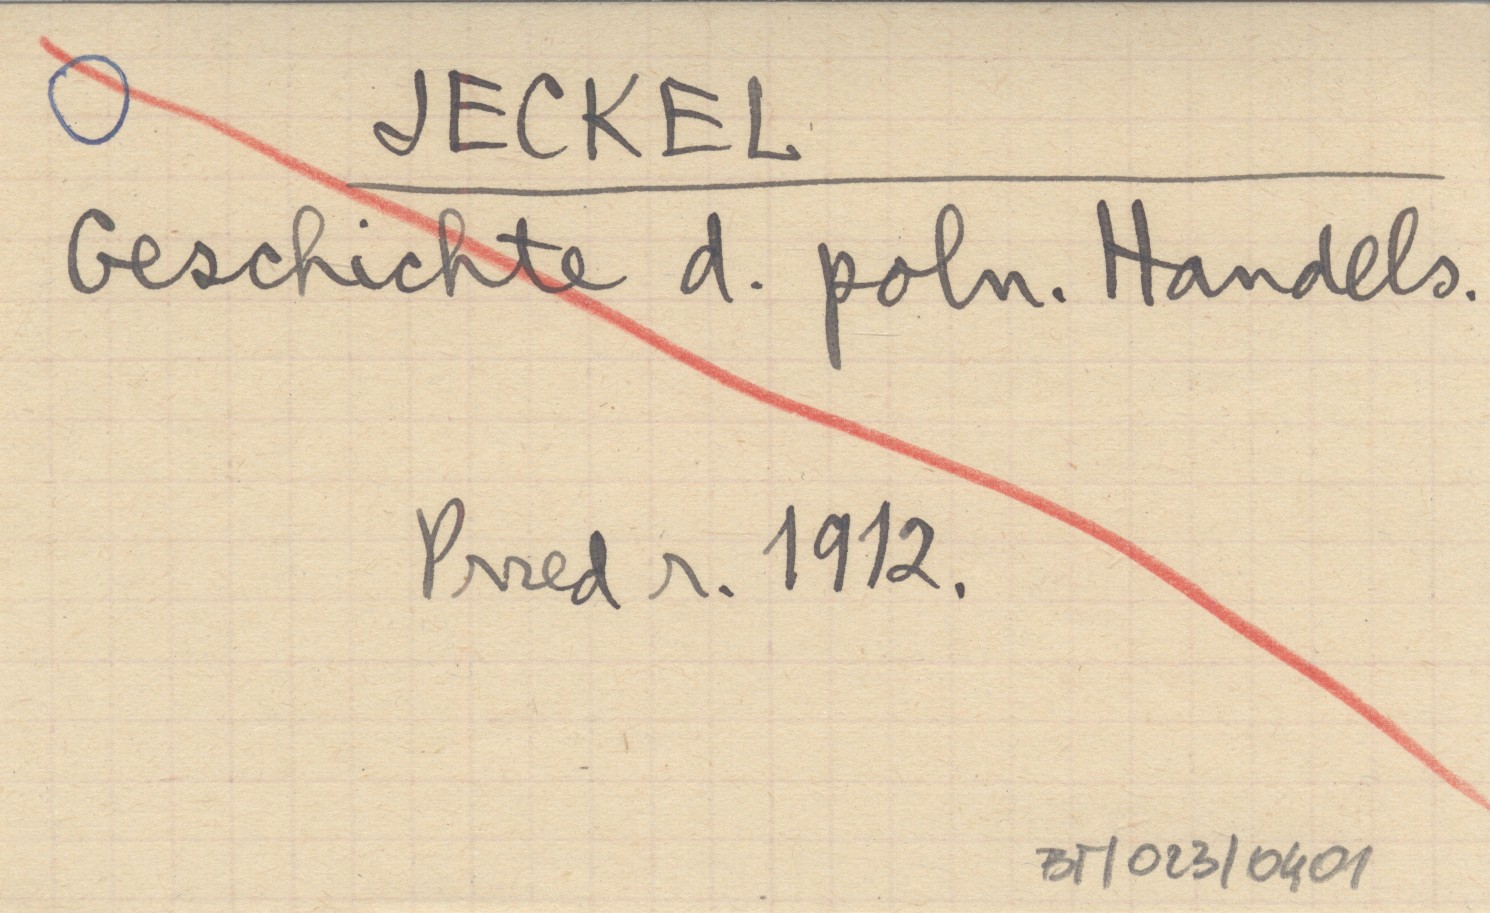 JECKEL
Geschichte d. poln. Handels.
Przed r. 1912.
BT/023/0401